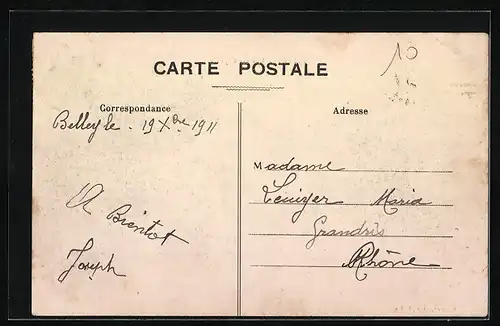 10
CARTE POSTALE
Correspondance
Belley le . 19 Xbre 1911
A Bientot
Joseph
Adresse
Madame
Maria
Grandris
Rhône